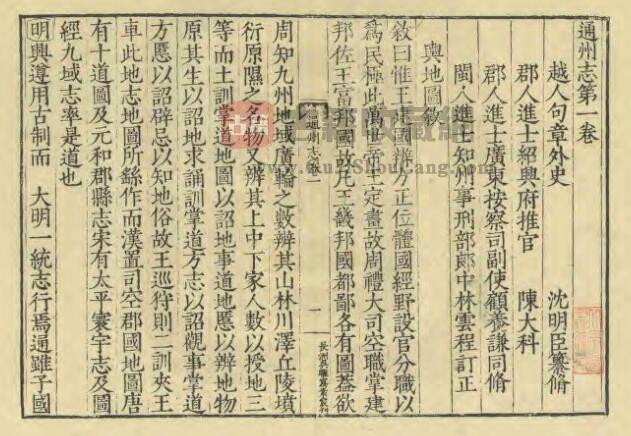 通州志第一卷
越人句章外史 沈明臣纂脩
郡人進士紹興府推官 陳大科
郡人進士廣東按察司副使顧養謙同脩
閩人進士知州事刑部郎中林雲程訂正
輿地圖敘
敘曰惟王建國辨方正位體國經野設官分職以
爲民極此萬世帝王定畫故周禮大司空職掌建
邦佐王富邦國故凡王畿邦國都鄙各有圖葢欲
通州志卷一
一
周知九州地域廣輪之數辨其山林川澤丘陵墳
衍原隰之名物又辨其上中下家人數以授地三
等而土訓掌道地圖以詔地事道地慝以辨地物
原其生以詔地求誦訓掌道方志以詔觀事掌道
方慝以詔辟忌以知地俗故王巡狩則二訓夾王
車此地志地圖所繇作而漢置司空郡國地圖唐
有十道圖及元和郡縣志宋有太平寰宇志及圖
經九域志率是道也
明興遵用古制而 大明一統志行焉通雖子國